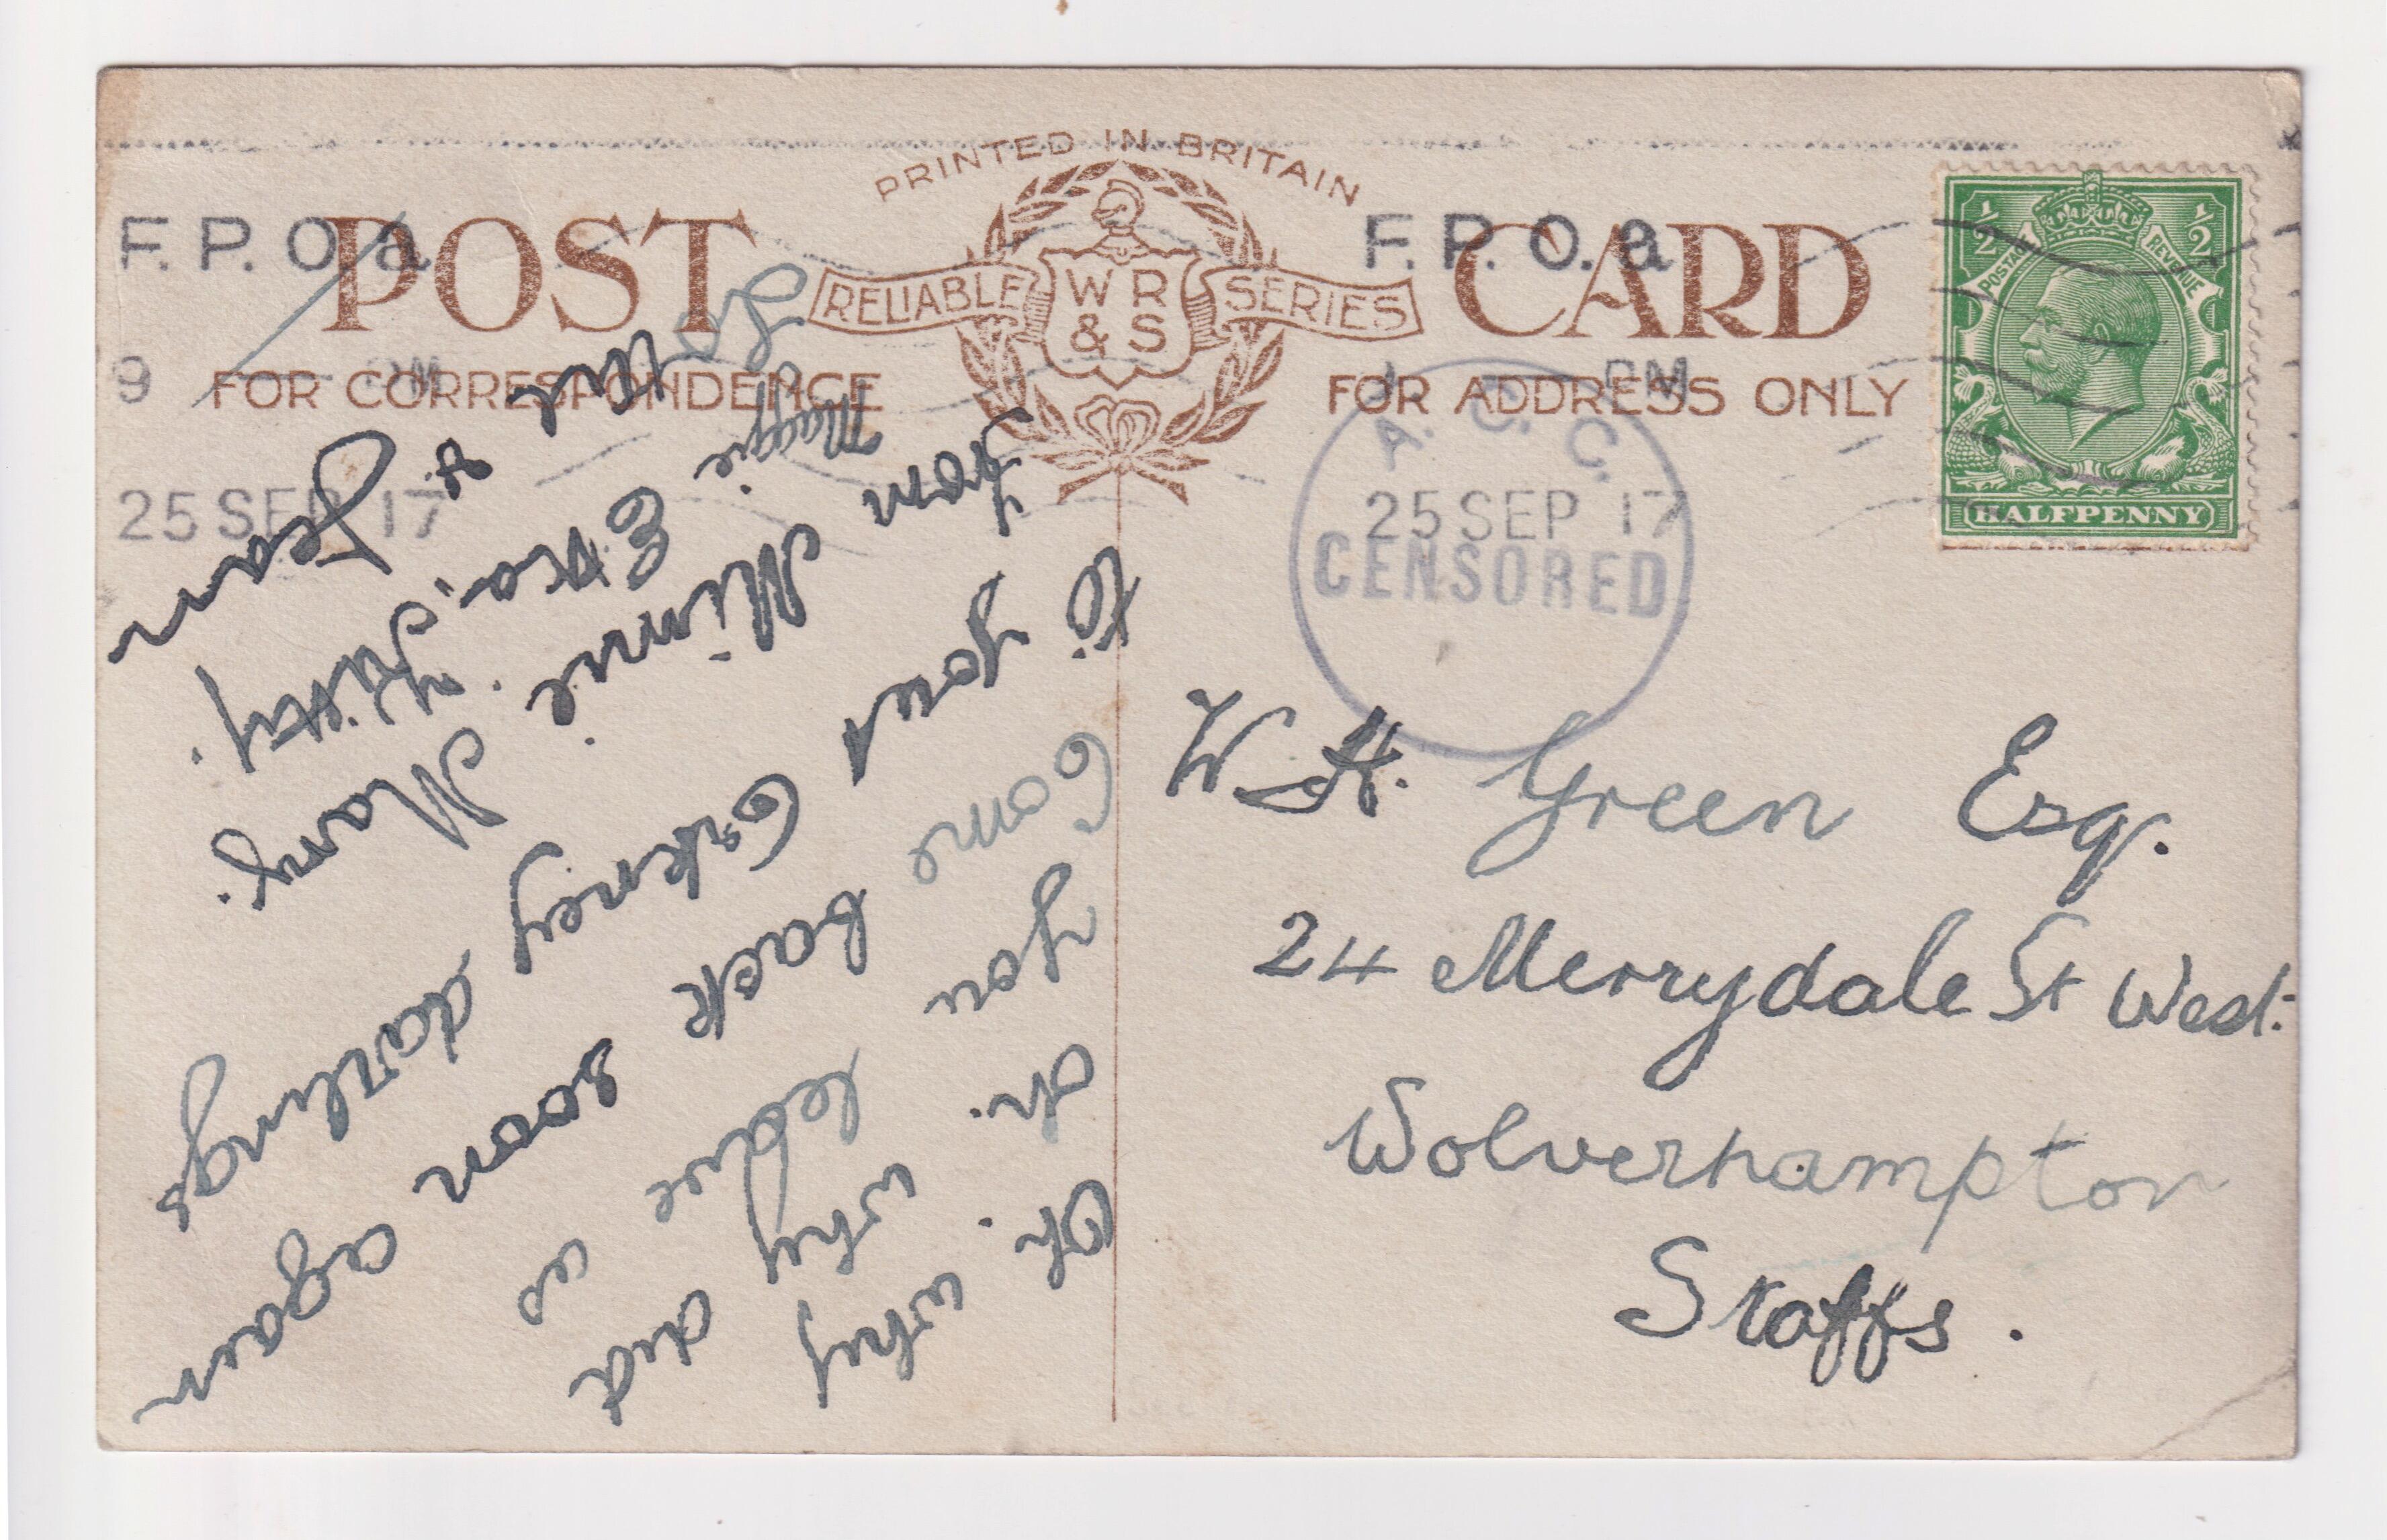 PRINTED IN BRITAIN
POST CARD
RELIABLE WR & S SERIES
FOR CORRESPONDENCE
FOR ADDRESS ONLY
F.P.O. a
9 PM
25 SEP 17
F.P.O. a
PM
25 SEP 17
A. C. C.
CENSORED
½ ½
POSTAGE REVENUE
HALFPENNY
Oh. why
oh. why did
you leave us
Come back soon again
to your Cokney darlings
from Minnie. Mary.
Maggie. Etta, Kitty.
& Jean
W. H. Green Esq.
24 Merrydale St West.
Wolverhampton
Staffs.